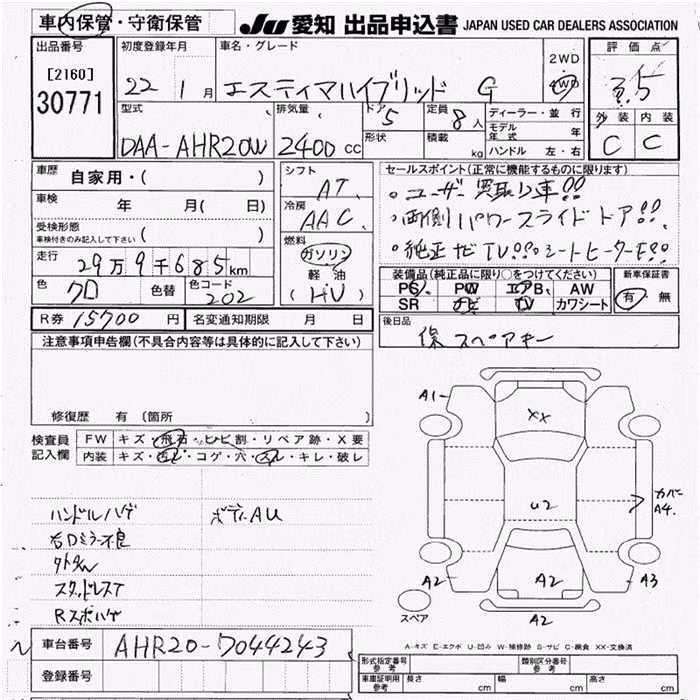 車内保管・守衛保管
JU 愛知 出品申込書 JAPAN USED CAR DEALERS ASSOCIATION
出品番号
[2160]
30771
初度登録年月
22 1 月
車名・グレード
エスティマハイブリッド G
2WD
4WD
評価点
3.5
外装 内装
C C
型式
DAA-AHR20W
排気量
2400 CC
ドア
5
形状
定員
8 人
積載
kg
ディーラー・並行
モデル年式 年
ハンドル 左・右
車歴 自家用・( )
車検 年 月( 日)
受検形態
車検付きのみ記入して下さい ( )
走行 29万9千685km
色 クロ 色替 色コード 202
シフト
AT
冷房
AAC
燃料
ガソリン
軽油
(HV)
セールスポイント(正常に機能するものに限ります)
・ユーザー買取り車!!
・両側パワースライドドア!!
・純正ナビTV!!・シートヒーターF!!
装備品(純正品に限り○をつけてください)
PS PW エアB AW
SR ナビ TV カワシート
新車保証書
有・無
R券 15700 円 名変通知期限 月 日
後日品
保 スペアキー
注意事項申告欄(不具合内容等は具体的に記入して下さい)
修復歴 有 (箇所
検査員記入欄
FW キズ・飛石・ヒビ割・リペア跡・X要
内装 キズ・汚レ・コゲ・穴・スレ・キレ・破レ
ハンドルハゲ ボディAU
右Dミラー不良
スタッドレスT
Rスポハゲ
A1
XX
U2
カバー
A4.
A2 A2 A3
A2
スペア
A-キズ E-エクボ U-凹み W-補修跡 S-サビ C-腐食 XX-交換済
車台番号 AHR20-7044243
登録番号
形式指定番号 参考
類別区分番号 参考
車庫証明用 参考 長さ cm 幅 cm 高さ cm